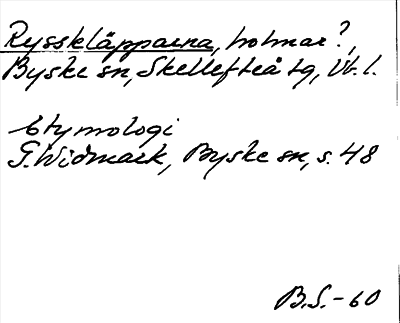 Rysskläpparna, holmar?,
Byske sn, Skellefteå tg, Vb. l.
Etymologi
G. Widmark, Byske sn, s. 48
B.S.-60